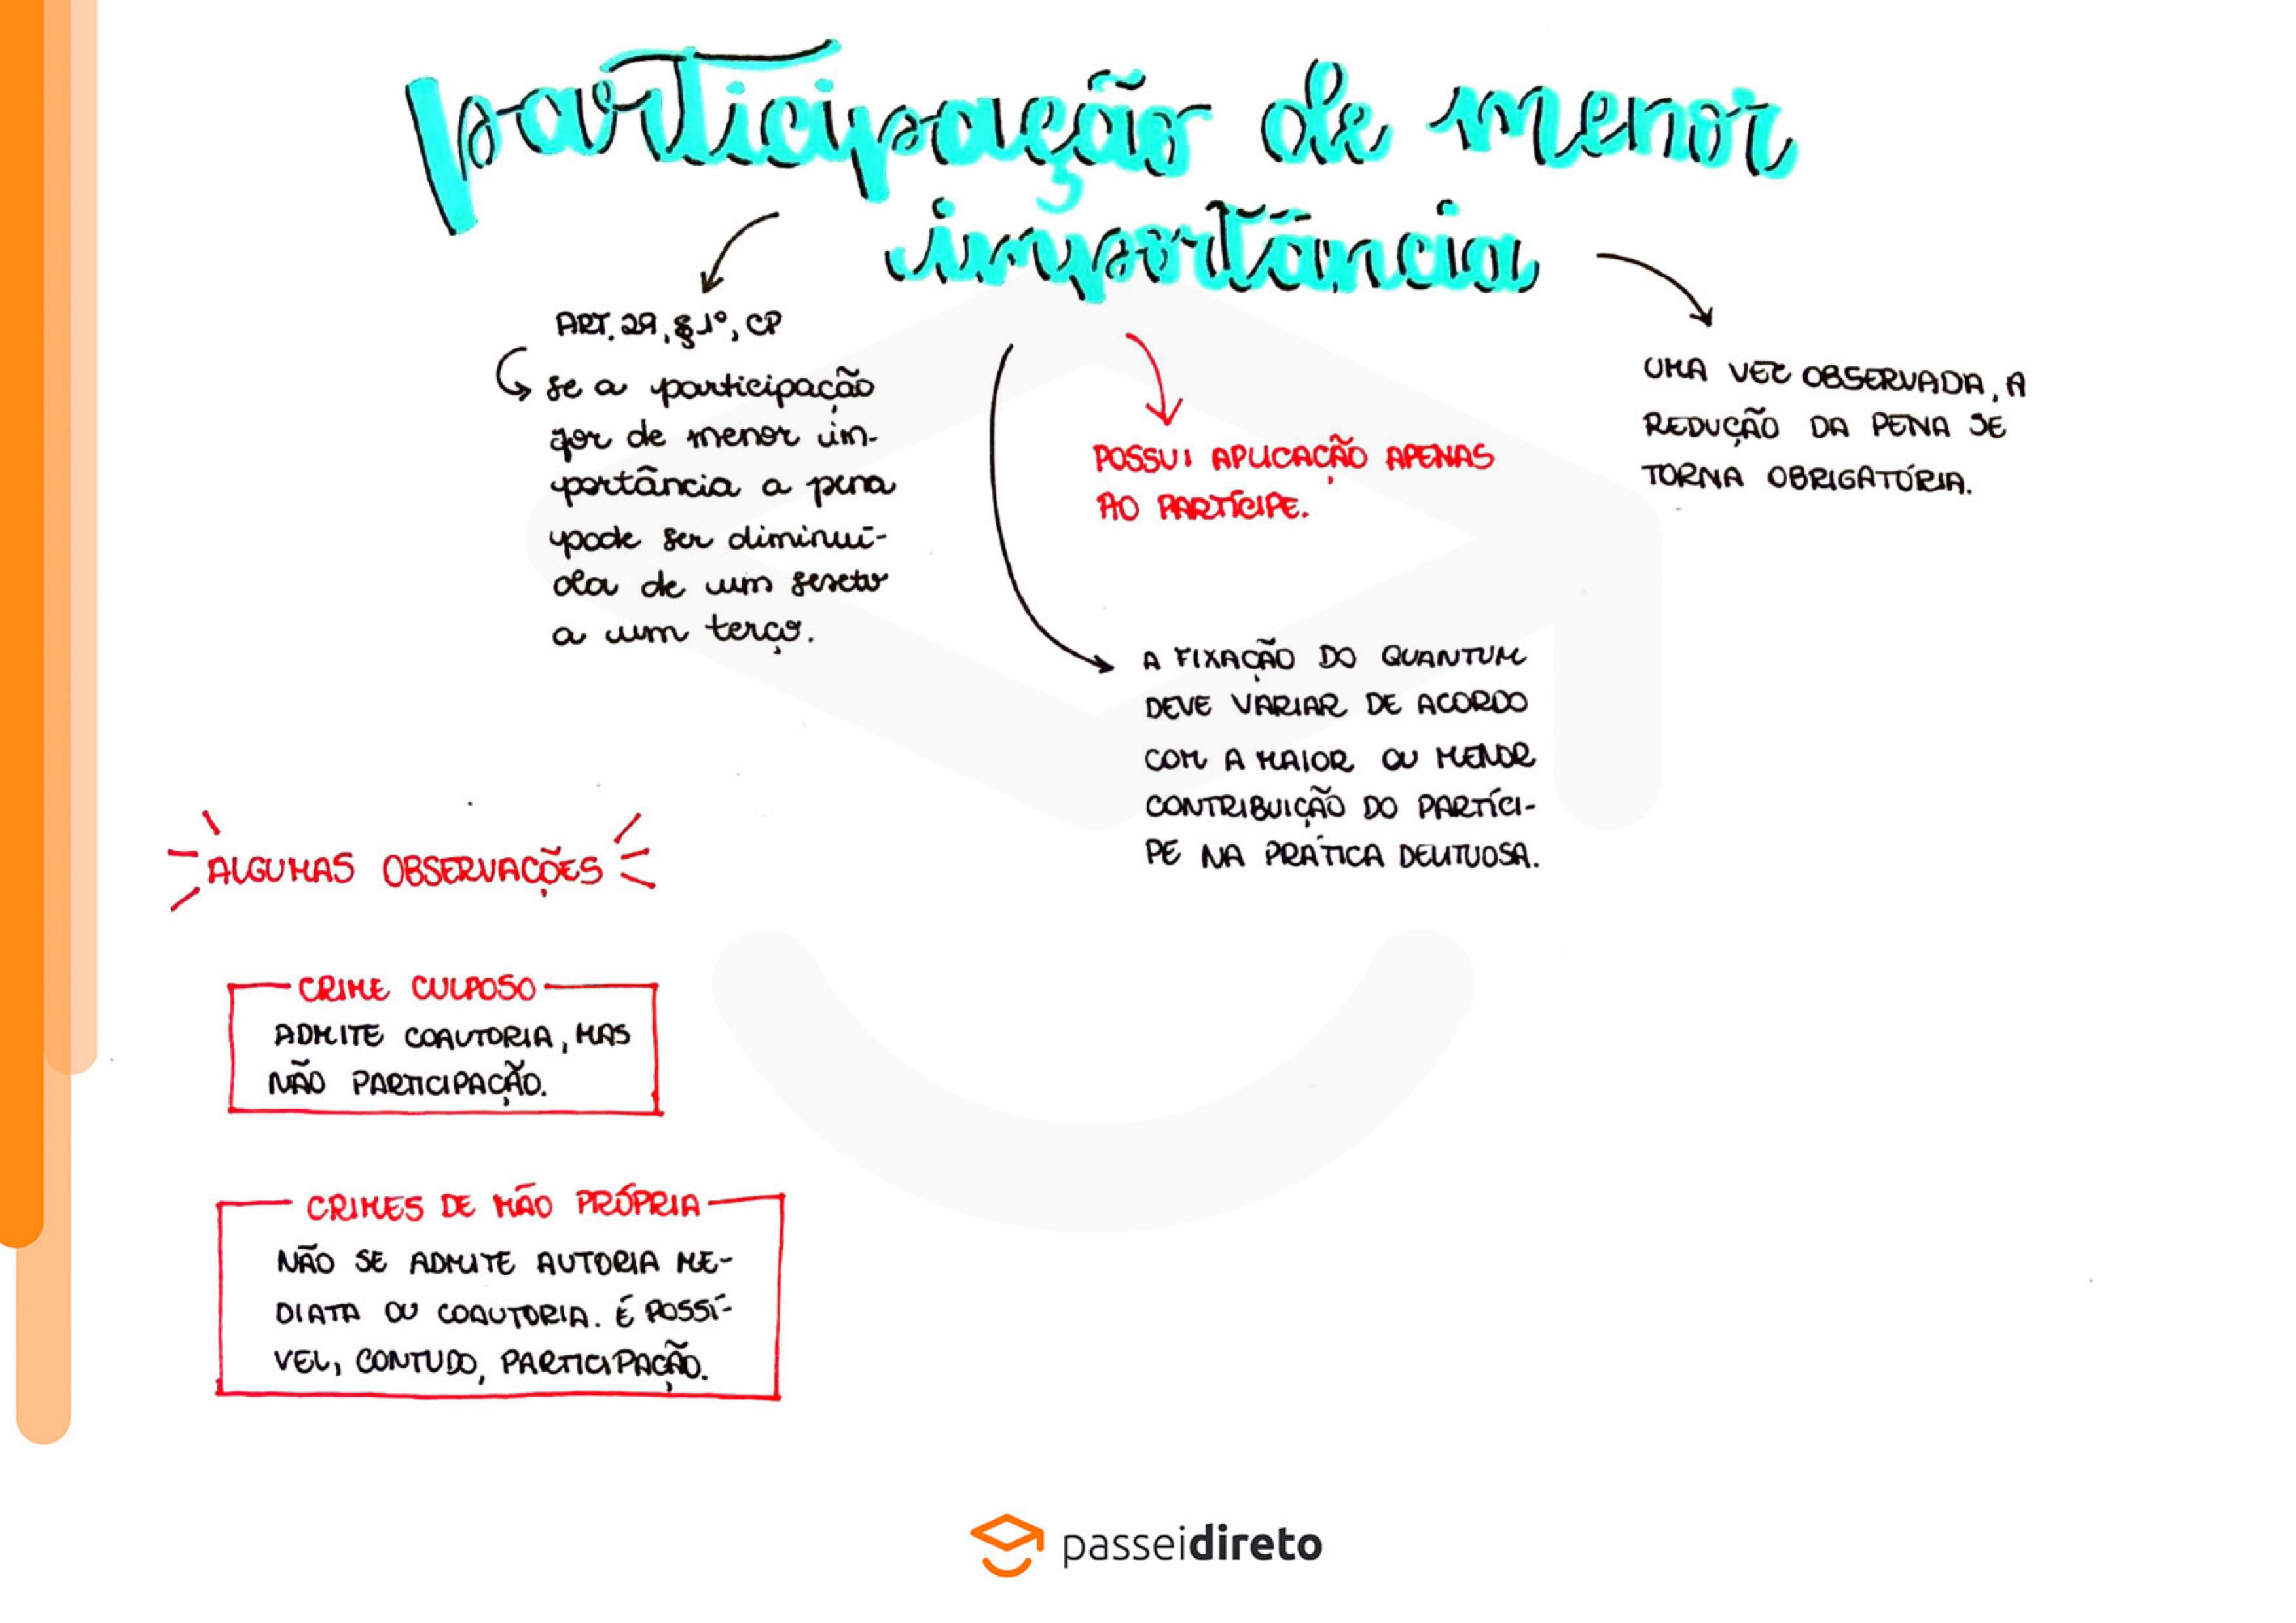 participação de menor
importância
ART. 29, § 1º, CP
se a participação
for de menor im-
portância a pena
pode ser diminuí-
da de um sexto
a um terço.
POSSUI APLICAÇÃO APENAS
AO PARTÍCIPE.
UMA VEZ OBSERVADA, A
REDUÇÃO DA PENA SE
TORNA OBRIGATÓRIA.
A FIXAÇÃO DO QUANTUM
DEVE VARIAR DE ACORDO
COM A MAIOR OU MENOR
CONTRIBUIÇÃO DO PARTÍCI-
PE NA PRÁTICA DELITUOSA.
ALGUMAS OBSERVAÇÕES
CRIME CULPOSO
ADMITE COAUTORIA, MAS
NÃO PARTICIPAÇÃO.
CRIMES DE MÃO PRÓPRIA
NÃO SE ADMITE AUTORIA ME-
DIATA OU COAUTORIA. É POSSÍ-
VEL, CONTUDO, PARTICIPAÇÃO.
passeidireto